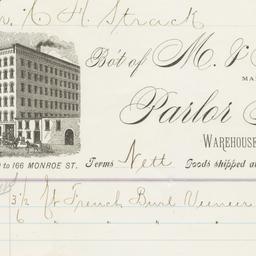 r. A H. Strack
Bo't of M. &
MA
Parlor
WAREHOUSE
to 166 MONROE ST. Terms Nett Goods shipped a
3½ ft French Burl Veneer
6 " " "